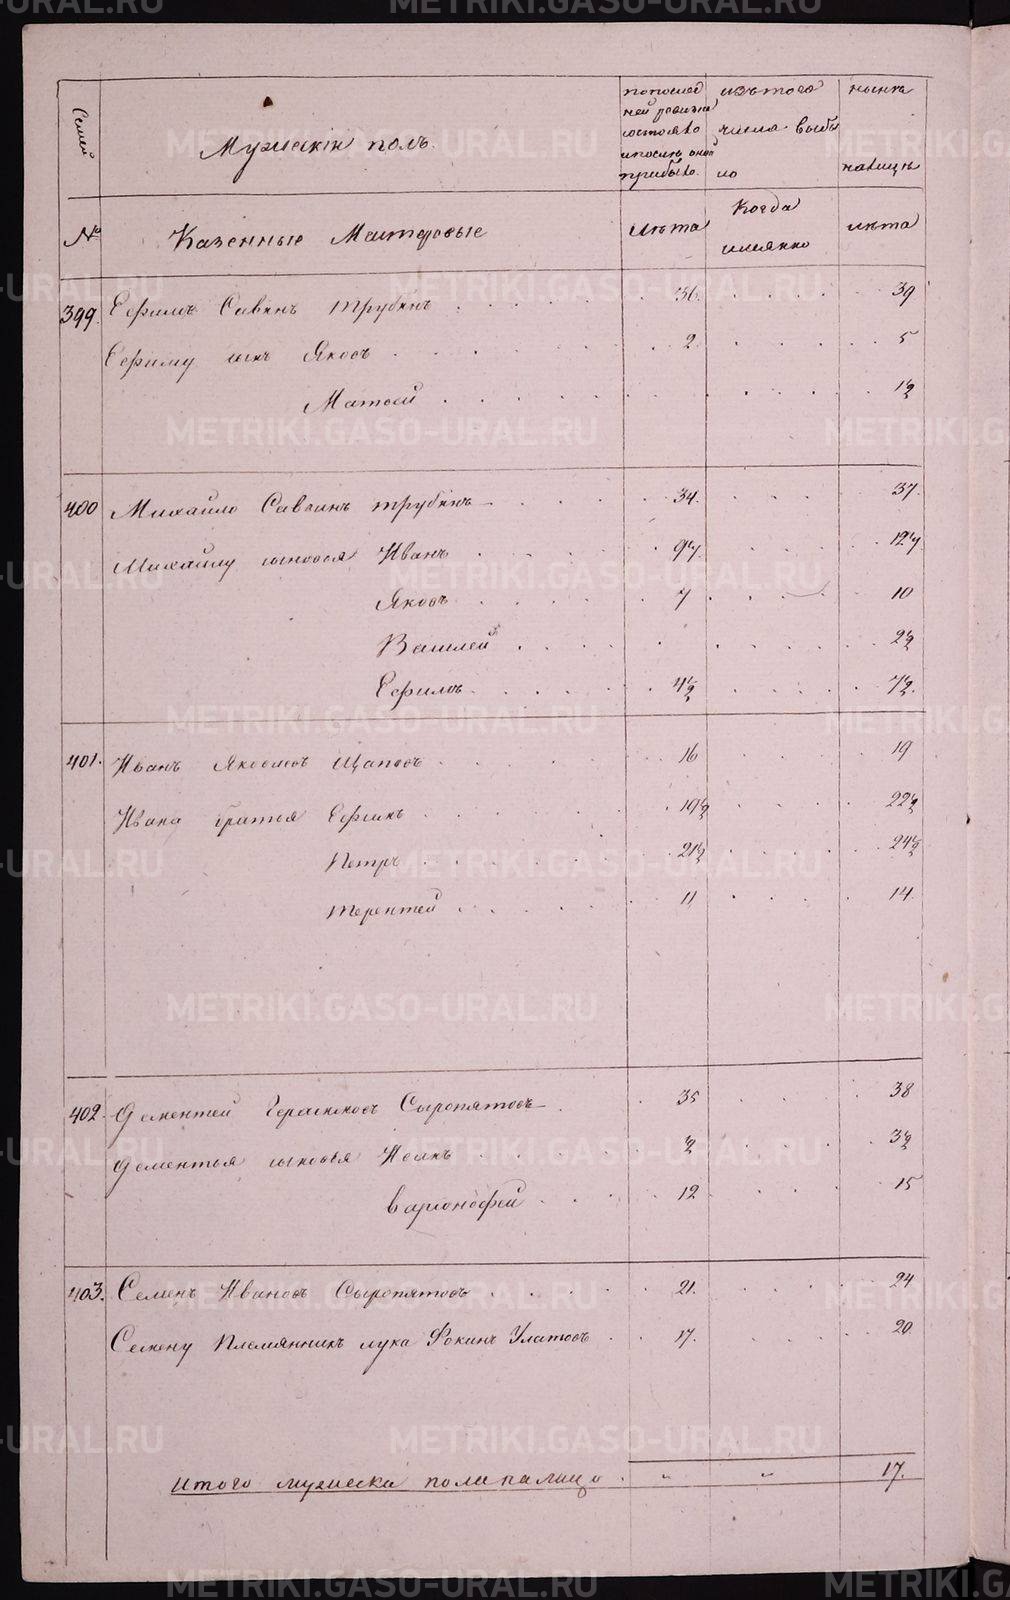 Семей
Мужескiй полъ.
по послед
ней ревизiи
состояло
и после оной
прибыло.
изъ того
числа выбы
ло
ныне
налице
№
Казенные Мастеровые
Лета
Когда
имянно
лета
399. Ефимъ Савинъ Трубинъ 36. 39
Ефиму сынъ Яковъ 2. 5
Матвей 1½
400 Михайло Саввинъ трубинъ 34. 37.
Михайлу сыновья Иванъ
Яковъ 7 10
Василей 2½
Ефимъ 4½ 7½.
401. Иванъ Яковлевъ Щаповъ 16 19
Ивана братья Ефимъ 19½ 22½
Петръ 21½ 24½
Терентей 11 14.
402. Дементей Герасимовъ Сыропятовъ 35 38
Дементья сыновья Исакъ ½ 3½
12 15
403. Семенъ Ивановъ Сыропятовъ 21. 24
Семену Племянникъ лука Фокинъ Улатовъ 17. 20
Итого мужеска пола налицо „ „ 17.
METRIKI.GASO-URAL.RU